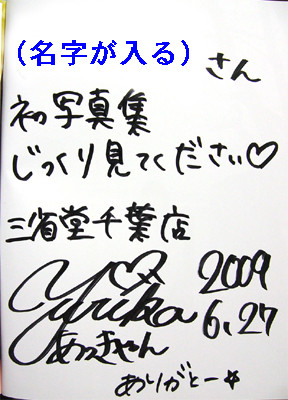 （名字が入る）
さん
初写真集
じっくり見てください♡
三省堂千葉店
Yurika 2009
6.27
あっきゃん
ありがとー☆